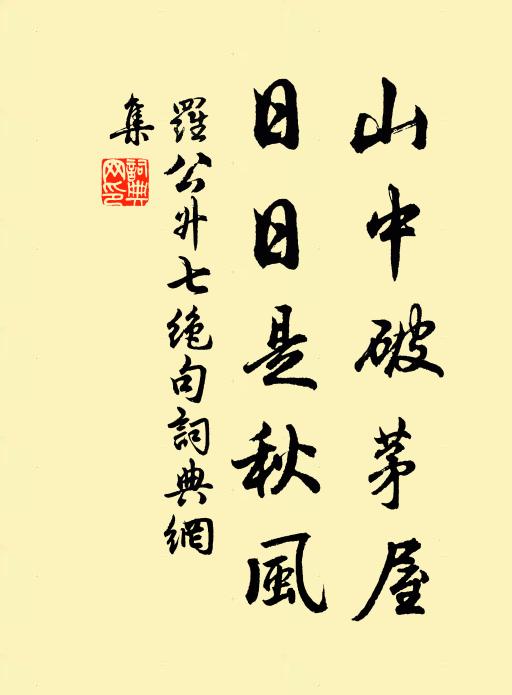 山中破茅屋
日日是秋風
羅公升七絕句詞典網
集
詞典網印